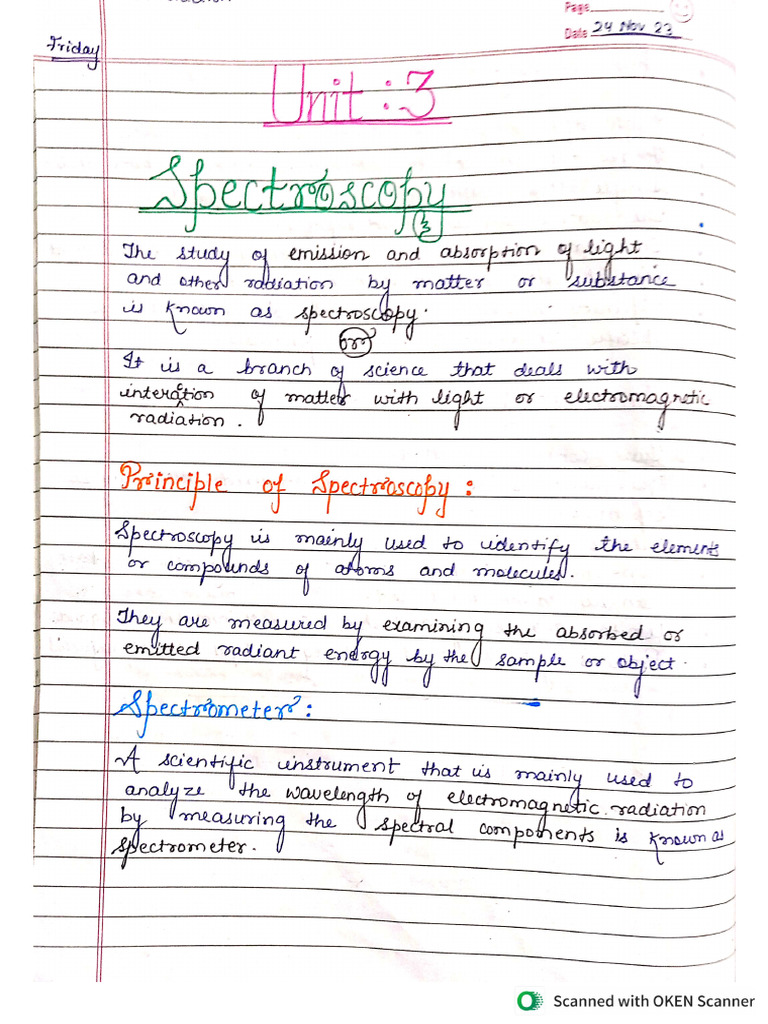 Page
Date 24 Nov 23
Friday
Unit : 3
Spectroscopy
3
The study of emission and absorption of light
and other radiation by matter or substance
is known as spectroscopy.
or
It is a branch of science that deals with
interaction of matter with light or electromagnetic
radiation.
Principle of Spectroscopy :
Spectroscopy is mainly used to identify the elements
or compounds of atoms and molecules.
They are measured by examining the absorbed or
emitted radiant energy by the sample or object.
Spectrometer :
A scientific instrument that is mainly used to
analyze the wavelength of electromagnetic radiation
by measuring the spectral components is known as
spectrometer.
Scanned with OKEN Scanner